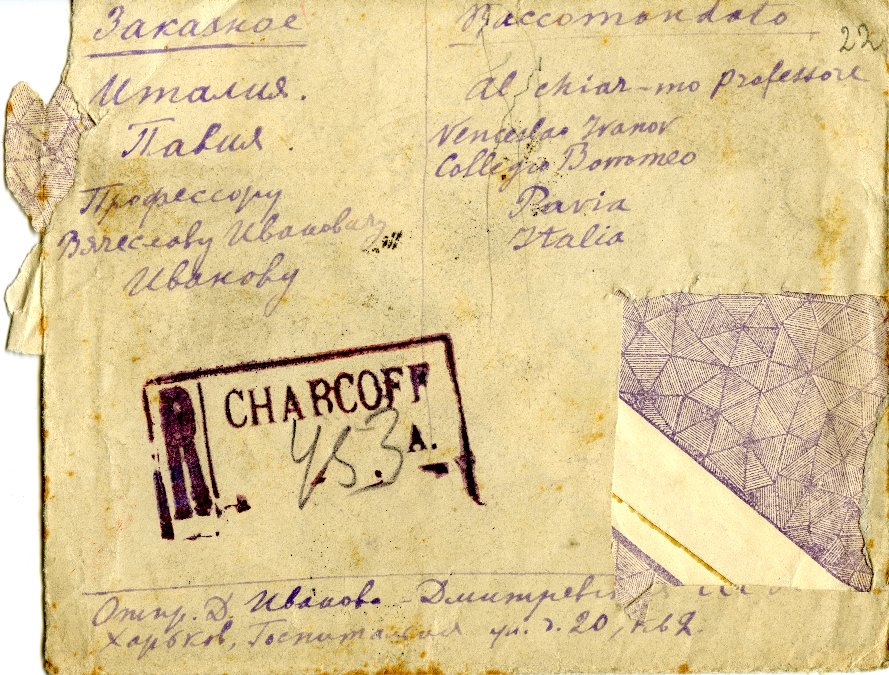 Заказное
Raccomandata
22
Италия.
Павия.
Профессору
Вячеславу Ивановичу
Иванову
Al chiar-mo professore
Venceslao Ivanov
Collegio Borromeo
Pavia
Italia
R
CHARCOFF
453
A.
Отпр. Д. Иванова-Дмитревск
Харьков, Госпитальная ул. г. 20, кв 2.